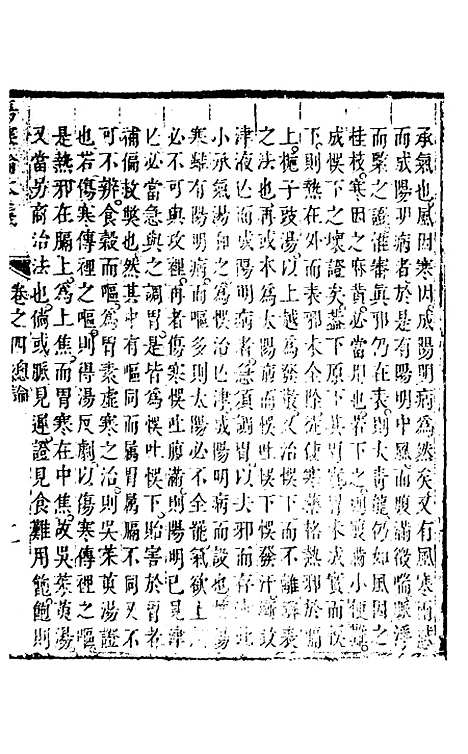 承氣也風因寒因成陽明病為然矣又有風寒兩感
而成陽明病者於是有陽明中風而腹滿微喘脈浮
而緊之證准審真邪仍在表則大青龍仍如風因之
桂枝寒因之麻黃必當用也若下之則腹滿小便難
成悞下之壞證矣蓋下原下其胃實胃未成實而悞
下則熱而表邪未全除徒使寒熱格熱邪於
上梔子豉湯以上越為發散又為不離表
之法也再或本為太陽病而為悞下悞發汗
津液亡而成陽明病者急須調胃以去邪而合
小承氣湯和之為悞治亡津成陽明病而設也傷
寒雖有陽明病而嘔多則太陽必不全罷氣欲上
必不可攻裡再者傷寒悞吐腹滿則陽明已見津
亡必當急與之調胃是皆為悞吐悞下貽害於
補偏救獘也然其中有嘔同而屬胃屬膈不同又不
可不辨食穀而嘔為胃素虛寒之治則吳茱萸湯證
也若傷寒傳裡之嘔則得湯反劇以傷寒傳裡之嘔
是熱邪在膈上為上焦而胃寒在中焦故吳茱萸湯
又當另商治法也倘或脈見遲證見食難用飽飽則
卷之四總論